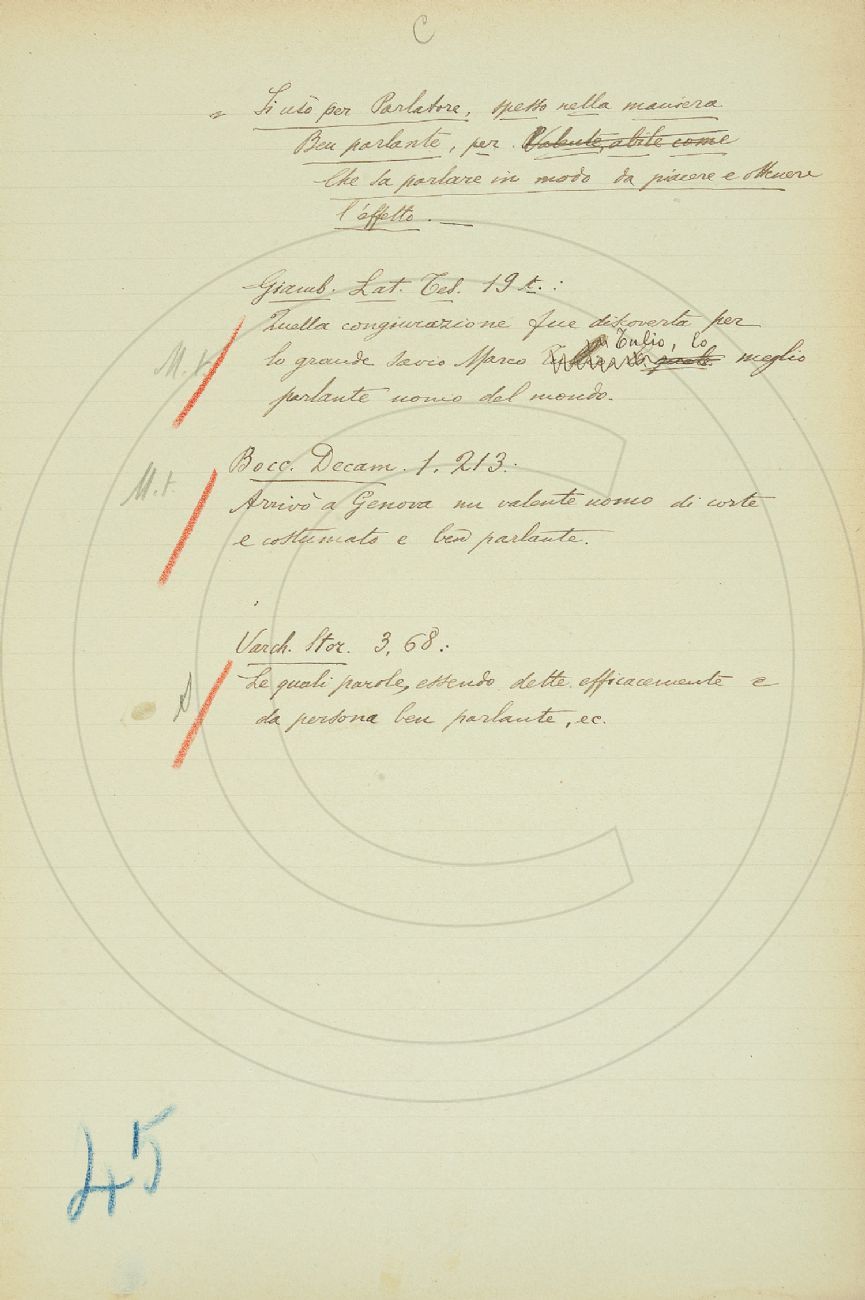 C
= Si usò per Parlatore, spesso nella maniera
Ben parlante, per Valente, abile come
Che sa parlare in modo da piacere e ottenere
l'effetto. —
Giamb. Lat. Tes. 19 t.:
Quella congiurazione fue discoverta per
Tulio, lo
lo grande savio Marco meglio
parlante uomo del mondo.
M. t.
Bocc. Decam. 1. 213:
Arrivò a Genova un valente uomo di corte
e costumato e ben parlante.
M. t.
Varch. Stor. 3, 68:
Le quali parole, essendo dette efficacemente e
da persona ben parlante, ec.
45